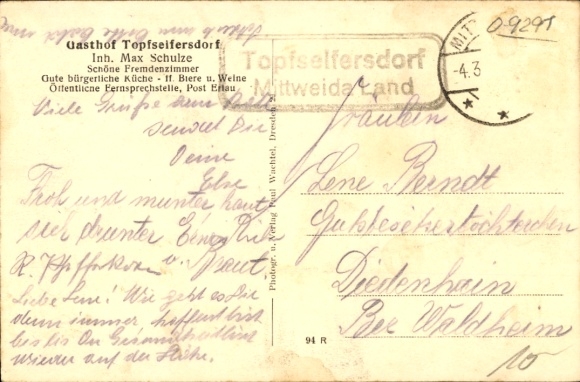 Gasthof Topfseifersdorf
Inh. Max Schulze
Schöne Fremdenzimmer
Gute bürgerliche Küche - ff. Biere u. Weine
Öffentliche Fernsprechstelle, Post Erlau
Topfseifersdorf
Mittweida Land
MITT
-4.3
0-9291
Viele Grüße zum
sendet Dir
Deine
Else
Froh und munter haut
sich drunter
R. u. Braut.
Liebe Lene! Wie geht es Dir
denn immer, hoffentlich bist
wieder auf der Höhe.
Photogr. u. Verlag Paul Wachtel, Dresden
Fräulein
Lene Berndt
Diedenhain
Bez Waldheim
94 R
10